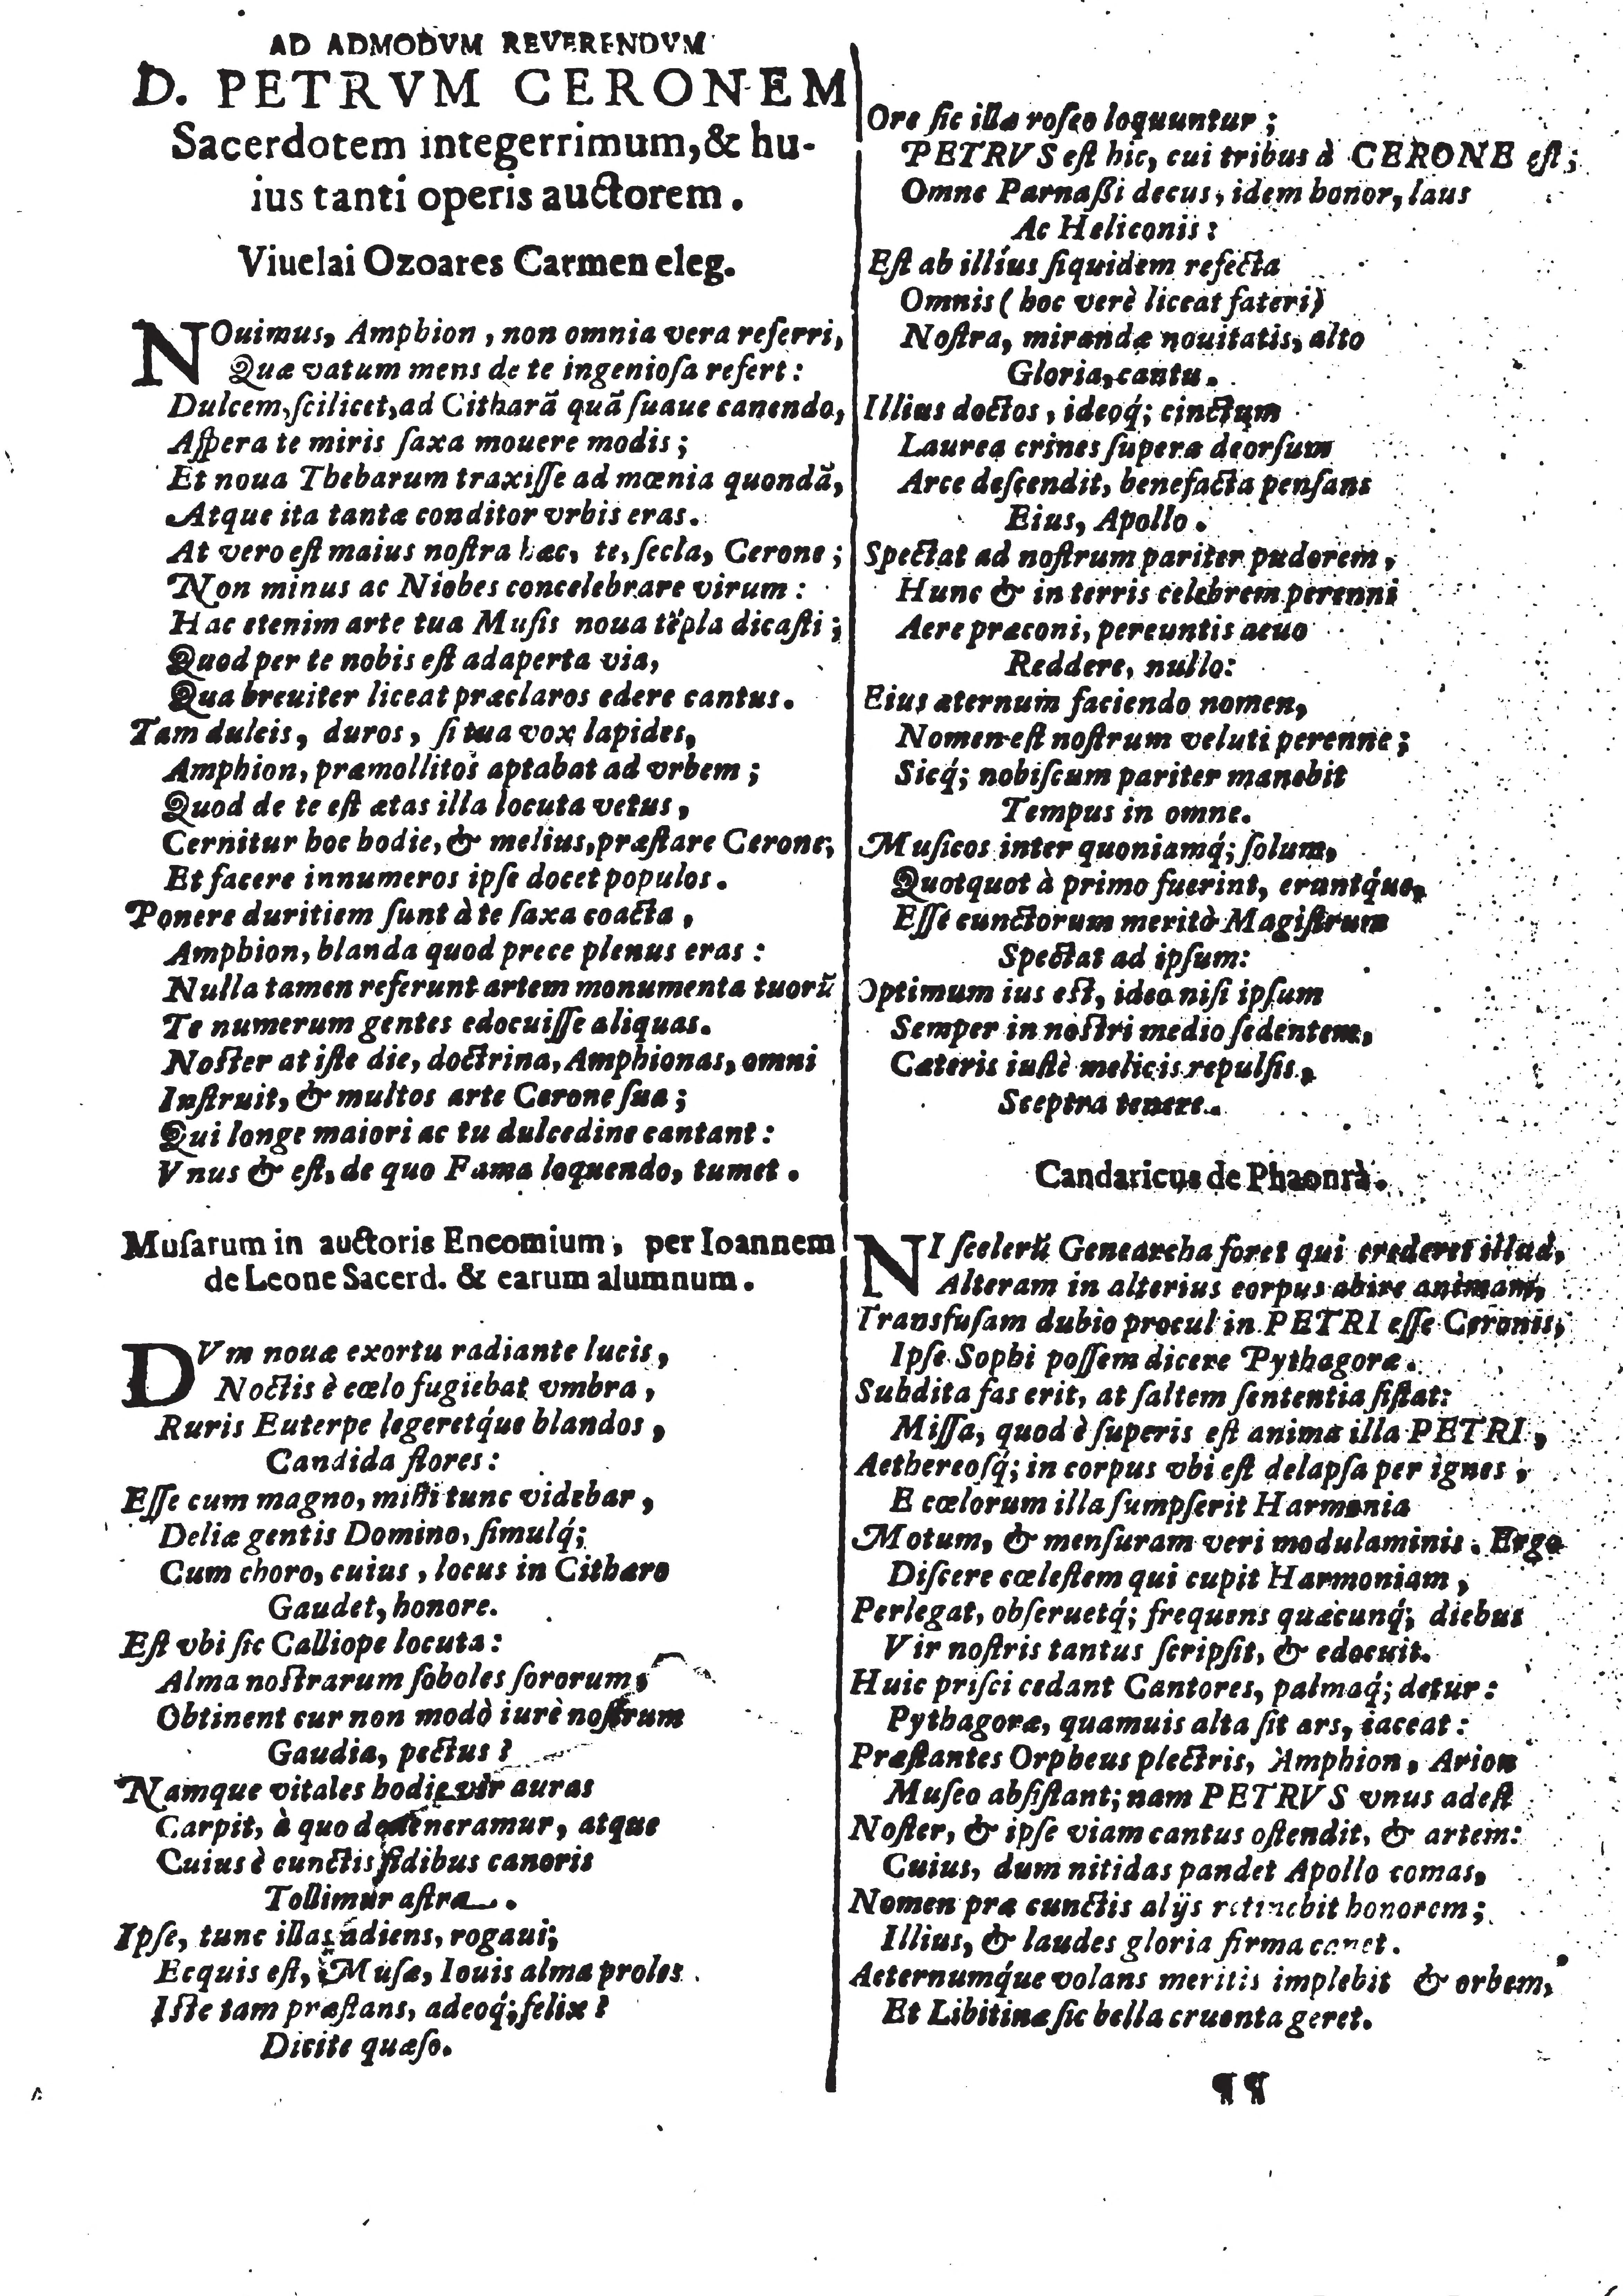 AD ADMODVM REVERENDVM
D. PETRVM CERONEM
Sacerdotem integerrimum, & hu-
ius tanti operis auctorem.
Viuelai Ozoares Carmen eleg.
NOuimus, Amphion, non omnia vera referri,
Quæ vatum mens de te ingeniosa refert:
Dulcem, scilicet, ad Citharã quã suaue canendo,
Aspera te miris saxa mouere modis;
Et noua Thebarum traxisse ad mœnia quondã,
Atque ita tantæ conditor vrbis eras.
At vero est maius nostra hæc, te, secla, Cerone;
Non minus ac Niobes concelebrare virum:
Hac etenim arte tua Musis noua tẽpla dicasti;
Quod per te nobis est adaperta via,
Qua breuiter liceat præclaros edere cantus.
Tam dulcis, duros, si tua vox lapides,
Amphion, præmollitos aptabat ad vrbem;
Quod de te est ætas illa locuta vetus,
Cernitur hoc hodie, & melius, præstare Cerone,
Et facere innumeros ipse docet populos.
Ponere duritiem sunt à te saxa coacta,
Amphion, blanda quod prece plenus eras:
Nulla tamen referunt artem monumenta tuorũ
Te numerum gentes edocuisse aliquas.
Noster at iste die, doctrina, Amphionas, omni
Instruit, & multos arte Cerone sua;
Qui longe maiori ac tu dulcedine cantant:
Vnus & est, de quo Fama loquendo, tumet.
Musarum in auctoris Encomium, per Ioannem
de Leone Sacerd. & earum alumnum.
DVm nouæ exortu radiante lucis,
Noctis è cœlo fugiebat vmbra,
Ruris Euterpe legeretq́ue blandos,
Candida flores:
Esse cum magno, misti tunc videbar,
Deliæ gentis Domino, simulq́;
Cum choro, cuius, locus in Citharo
Gaudet, honore.
Est vbi sic Calliope locuta:
Alma nostrarum soboles sororum,
Obtinent cur non modò iurè nostrum
Gaudia, pectus?
Namque vitales hodie vir auras
Carpit, à quo degeneramur, atque
Cuius è cunctis fidibus canoris
Tollimur astra.
Ipse, tunc illas adiens, rogaui;
Ecquis est, Musæ, Iouis alma proles
Iste tam præstans, adeoq́; felix?
Dicite quæso.
Ore sic illæ roseo loquuntur;
PETRVS est hic, cui tribus à CERONE est;
Omne Parnassi decus, idem honor, laus
Ac Heliconis:
Est ab illíus siquidem refecta
Omnis (hoc verè liceat fateri)
Nostra, mirandæ nouitatis, alto
Gloria, cantu.
Illius doctos, ideoq́; cinctum
Laurea crines supera deorsum
Arce descendit, benefacta pensans
Eius, Apollo.
Spectat ad nostrum pariter pudorem,
Hunc & in terris celebrem perenni
Aere præconi, pereuntis aeuo
Reddere, nullo:
Eius æternum faciendo nomen,
Nomen est nostrum veluti perenne;
Sicq́; nobiscum pariter manebit
Tempus in omne.
Musicos inter quoniamq́; solum,
Quotquot à primo fuerint, eruntq́ue,
Esse cunctorum meritò Magistrum
Spectat ad ipsum:
Optimum ius est, ideo nisi ipsum
Semper in nostri medio sedentem,
Cæteris iustè melicis repulsis,
Sceptra tenere.
Candaricus de Phaonrà.
NI scelerũ Genearcha foret qui crederet illud,
Alteram in alterius corpus abire animam,
Transfusam dubio procul in PETRI esse Ceronis,
Ipse Sophi possem dicere Pythagoræ.
Subdita fas erit, at saltem sententia sistat:
Missa, quod è superis est anima illa PETRI,
Aethereosq́; in corpus vbi est delapsa per ignes,
E cœlorum illa sumpserit Harmonia
Motum, & mensuram veri modulaminis. Ergo
Discere cœlestem qui cupit Harmoniam,
Perlegat, obseruetq́; frequens quæcunq́; diebus
Vir nostris tantus scripsit, & edocuit.
Huic prisci cedant Cantores, palmaq́; detur:
Pythagoræ, quamuis alta sit ars, iaceat:
Præstantes Orpheus plectris, Amphion, Arion
Museo absistant; nam PETRVS vnus adest
Noster, & ipse viam cantus ostendit, & artem:
Cuius, dum nitidas pandet Apollo comas,
Nomen præ cunctis alijs retinebit honorem;
Illius, & laudes gloria firma canet.
Aeternumq́ue volans meritis implebit & orbem,
Et Libitinæ sic bella cruenta geret.
¶¶